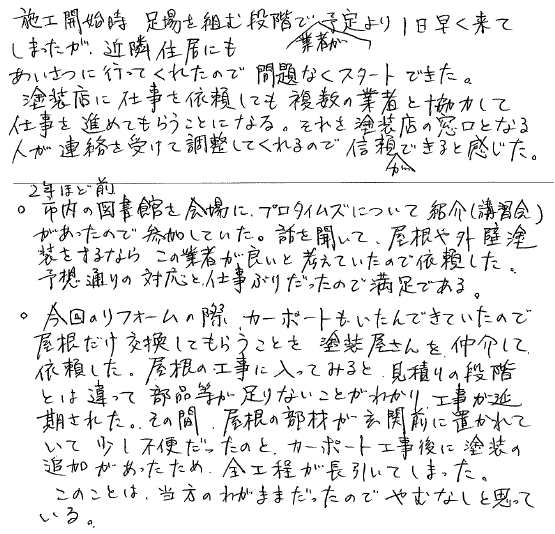 施工開始時 足場を組む段階で予定より1日早く来て
業者が
しまったが、近隣住居にも
あいさつに行ってくれたので 問題なくスタートできた。
塗装店に仕事を依頼しても複数の業者と協力して
仕事を進めてもらうことになる。それを塗装店の窓口となる
人が連絡を受けて調整してくれるので信頼できると感じた。
が
2年ほど前
○ 市内の図書館を会場に、プロタイムズについて紹介(講習会)
があったので参加していた。話を聞いて、屋根や外壁塗
装をするなら この業者が良いと考えていたので依頼した。
予想通りの対応と仕事ぶりだったので満足である。
○ 今回のリフォームの際、カーポートもいたんできていたので
屋根だけ交換してもらうことを 塗装屋さんを仲介して
依頼した。屋根の工事に入ってみると、見積りの段階
とは違って 部品等が足りないことがわかり、工事が延
期された。その間、屋根の部材が玄関前に置かれて
いて 少し不便だったのと、カーポート工事後に塗装の
追加があったため、全工程が長引いてしまった。
このことは、当方のわがままだったので やむなしと思って
いる。